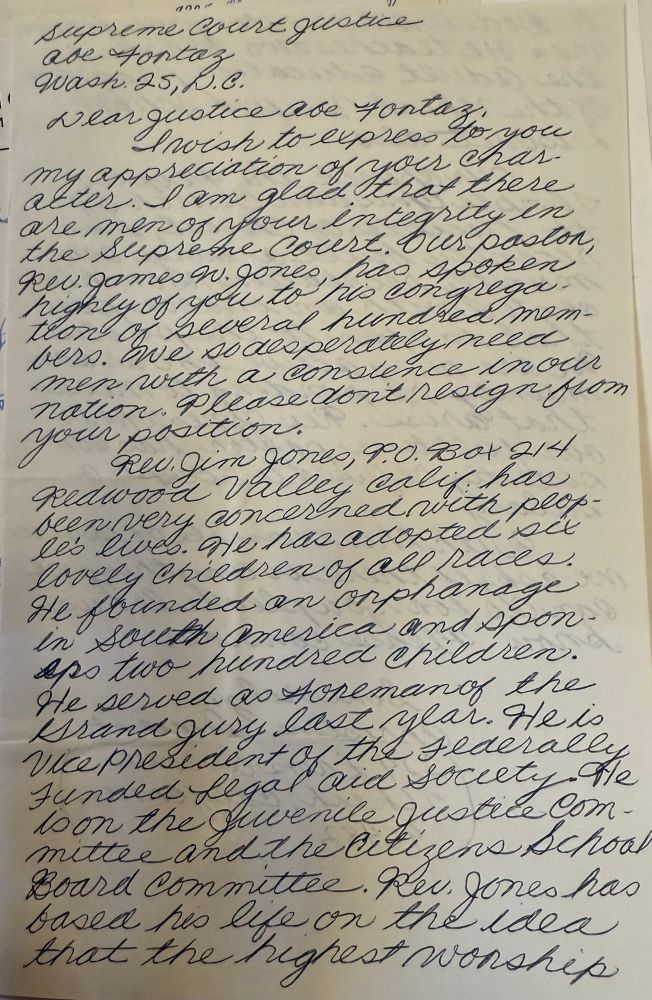 Supreme Court Justice
Abe Fontaz
Wash. 25, D.C.
Dear Justice Abe Fontaz,
I wish to express to you
my appreciation of your char-
acter. I am glad that there
are men of your integrity in
the Supreme Court. Our pastor,
Rev. James W. Jones, has spoken
highly of you to his congrega-
tion of several hundred mem-
bers. We so desperately need
men with a consience in our
nation. Please don't resign from
your position.
Rev. Jim Jones, P.O. Box 214
Redwood Valley Calif. has
been very concerned with peop-
le's lives. He has adopted six
lovely children of all races.
He founded an orphanage
in South America and spon-
sers two hundred children.
He served as Foreman of the
Grand Jury last year. He is
Vice President of the Federally
Funded Legal Aid Society. He
is on the Juvenile Justice Com-
mittee and the Citizens School
Board Committee. Rev. Jones has
based his life on the idea
that the highest worship